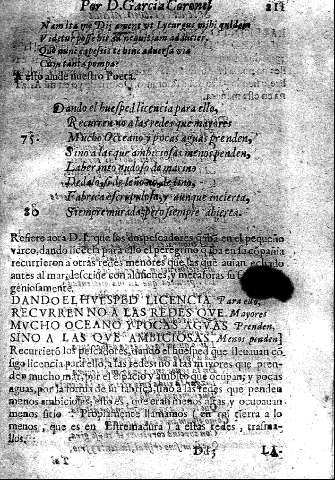 Por D. Garcia Coronel 211
Nam ita me Dij ament ut Lycurgus mihi quidem
Videtur posse hic ad nequitiam adducier.
Cum tanta pompa?
A esto añade nuestro Poeta.
Dando el huesped licencia para ello,
Recurren no a las redes que mayores
75. Mucho Oceano y pocas aguas prenden,
Sino a las que ambiciosas menos penden,
Laberinto nudoso de marino
Dedalo, si de leño no, de lino,
Fabrica escrupulosa, y aunque incierta,
80 Siempre murada, pero siempre abierta.
Refiere aora D. L. que los dos pescadores en el pequeño
varco, dando licencia para ello el peregrino q̃ iba en su cõpañia
recurrieron a otras redes menores que las que auian echado
antes al mar, descriue con alusiones, y metaforas su
geniosamente.
DANDO EL HVESPED LICENCIA Para ello,
RECVRREN NO A LAS REDES QVE Mayores
MVCHO OCEANO Y POCAS AGVAS Prenden,
SINO A LAS QVE AMBICIOSAS Menos penden]
Recurriero los pescadores, dando el huesped que lleuauan cõ
sigo licencia para ello, a las redes no a las mayores que pren-
den mucho mar, por el espacio y ambito que ocupan, y pocas
aguas, por la forma de su fabrica, sino a las redes que penden
menos ambiciosas, esto es, que eran menos altas, y ocupauan
menos sitio. Propiamente llamamos (en mi tierra a lo
menos, que es en Estremadura) a estas redes, trasma-
llos,
Dd 5 LA-